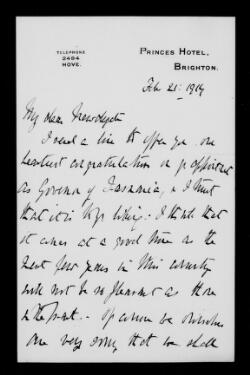 TELEPHONE
2484
HOVE.
PRINCES HOTEL,
BRIGHTON.
Feb. 21st 1917
My dear Newdegate
I send a line to offer you our
heartiest congratulations on yr appointment
as Governor of Tasmania, & I trust
that it is to yr liking. I think that
it comes at a good time as the
next few years in this country
will not be so pleasant as those
in the past. - Of course we ourselves
are very sorry that we shall